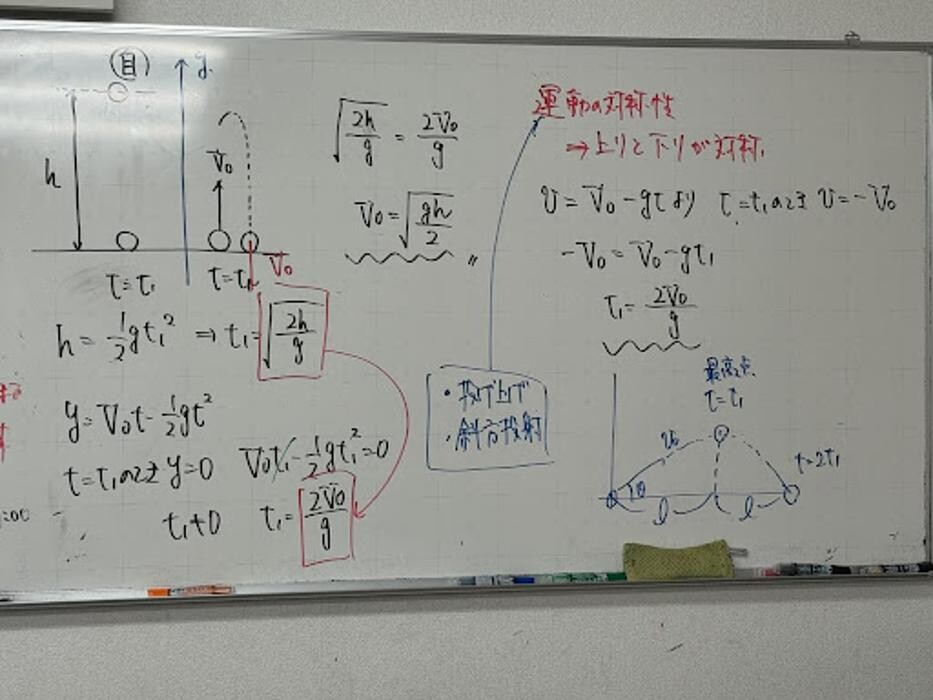 自
y
h
V₀
t=t₁ t=t₁ V₀
h = 1/2 gt₁² ⇒ t₁ = √(2h/g)
y = V₀t - 1/2 gt²
t=t₁のとき y=0 V₀t₁ - 1/2 gt₁² = 0
t₁≠0 t₁ = 2V₀/g
√(2h/g) = 2V₀/g
V₀ = √(gh/2) 〃
・投げ上げ
・斜方投射
運動の対称性
⇒ 上りと下りが対称.
v = V₀ - gt より t=t₁のとき v = -V₀
-V₀ = V₀ - gt₁
t₁ = 2V₀/g
最高点
t=t₁
v₀
θ
t=2t₁
l l